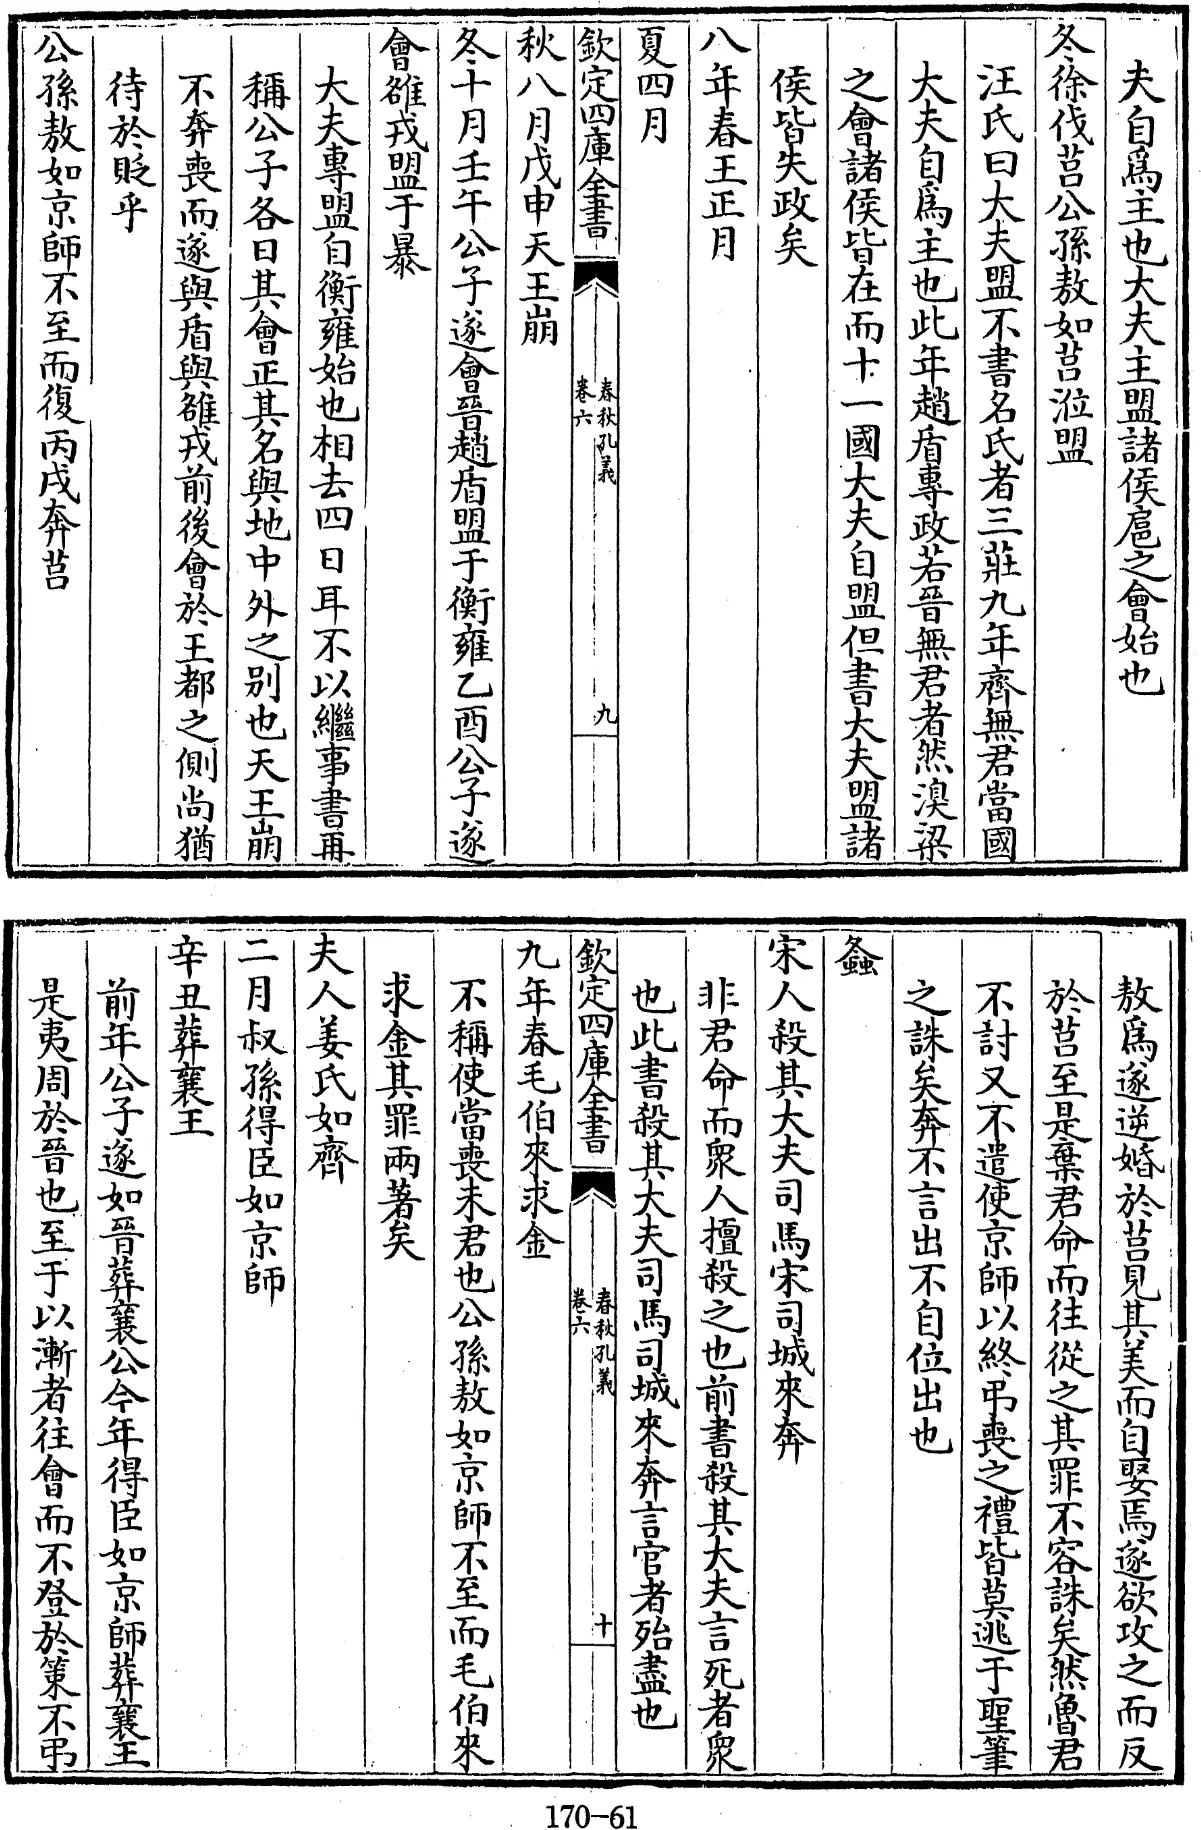 夫自爲主也大夫主盟諸侯扈之會始也
冬徐伐莒公孫敖如莒涖盟
汪氏曰大夫盟不書名氏者三莊九年齊無君當國
大夫自爲主也此年趙盾專政若晉無君者然溴梁
之會諸侯皆在而十一國大夫自盟但書大夫盟諸
侯皆失政矣
八年春王正月
夏四月
欽定四庫全書
春秋孔義
卷六
九
秋八月戊申天王崩
冬十月壬午公子遂會晉趙盾盟于衡雍乙酉公子遂
會雒戎盟于暴
大夫專盟自衡雍始也相去四日耳不以繼事書再
稱公子各日其會正其名與地中外之别也天王崩
不奔喪而遂與盾與雒戎前後會於王都之側尚猶
待於貶乎
公孫敖如京師不至而復丙戌奔莒
敖爲遂逆婚於莒見其美而自娶焉遂欲攻之而反
於莒至是棄君命而往從之其罪不容誅矣然魯君
不討又不遣使京師以終弔喪之禮皆莫逃于聖筆
之誅矣奔不言出不自位出也
螽
宋人殺其大夫司馬宋司城來奔
非君命而衆人擅殺之也前書殺其大夫言死者衆
也此書殺其大夫司馬司城來奔言官者殆盡也
欽定四庫全書
春秋孔義
卷六
十
九年春毛伯來求金
不稱使當喪未君也公孫敖如京師不至而毛伯來
求金其罪兩著矣
夫人姜氏如齊
二月叔孫得臣如京師
辛丑葬襄王
前年公子遂如晉葬襄公今年得臣如京師葬襄王
是夷周於晉也至于以漸者往會而不登於策不弔
170-61